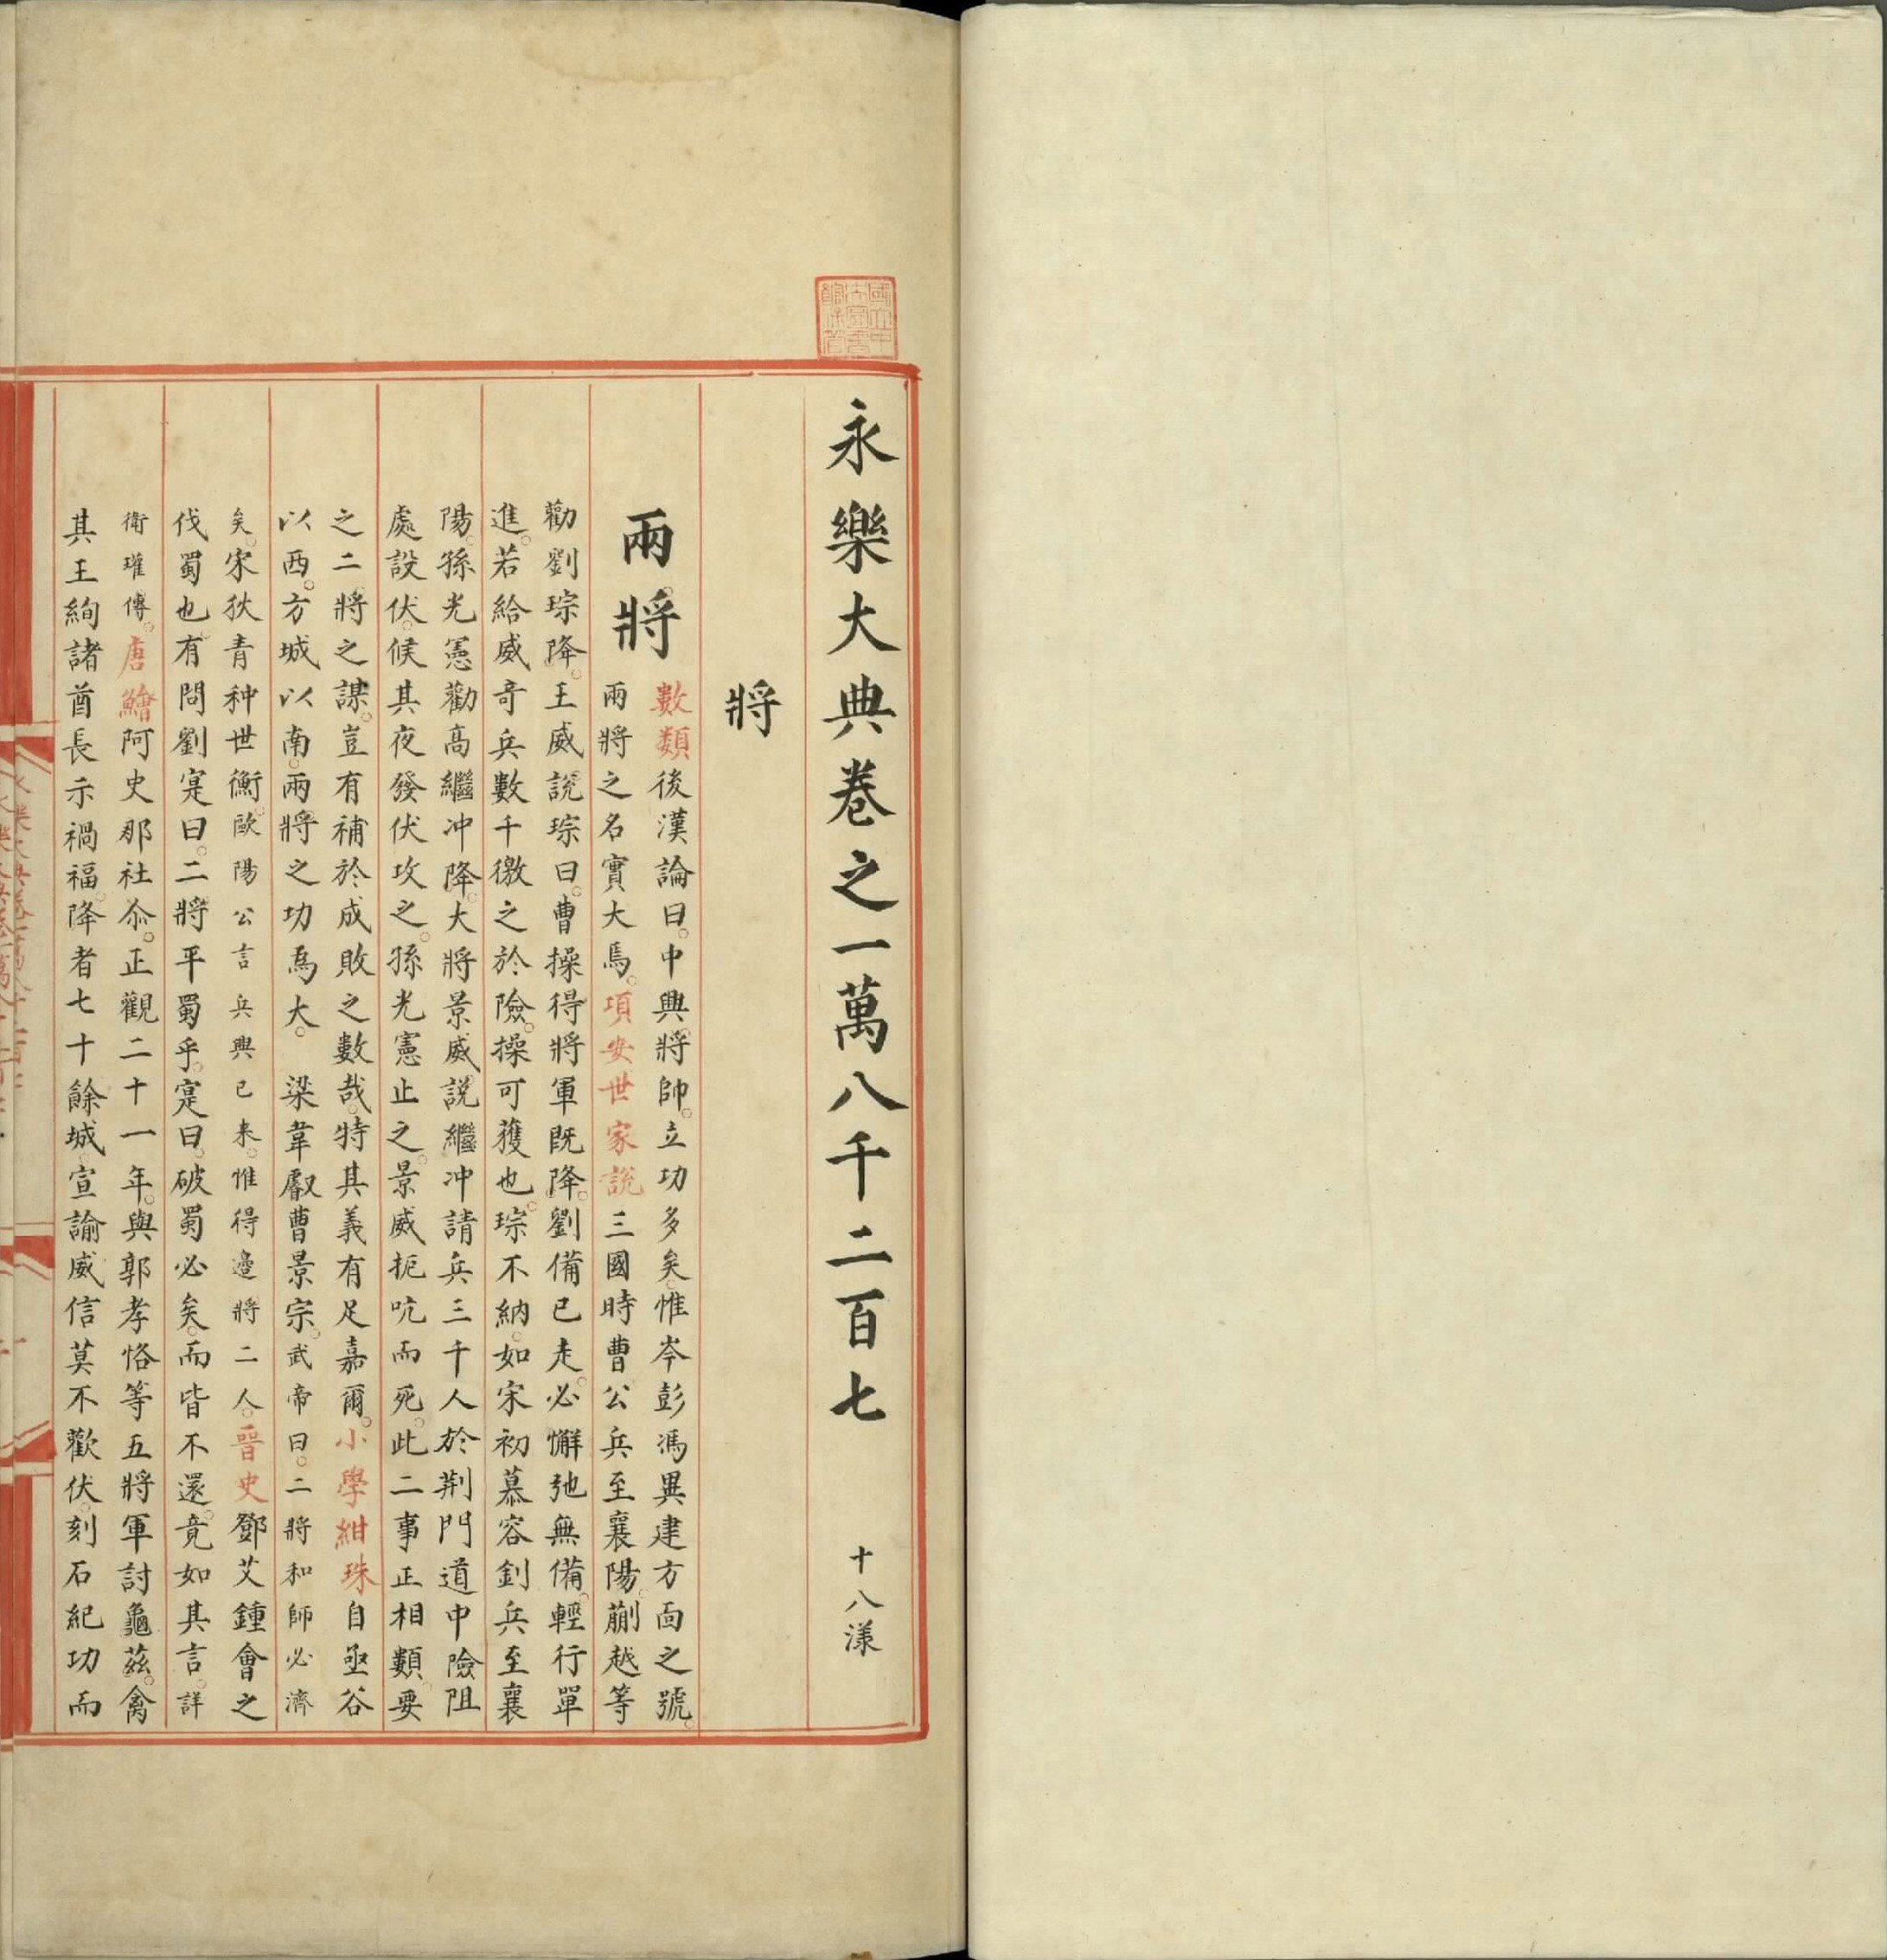 永樂大典卷之一萬八千二百七 十八漾
將
兩將
數類後漢論曰中興將帥立功多矣惟岑彭馮異建方面之號
兩將之名實大焉項安世家說三國時曹公兵至襄陽蒯越等
勸劉琮降王威說琮曰曹操得將軍既降劉備已走必懈弛無備輕行單
進若給威奇兵數千徼之於險操可獲也琮不納如宋初慕容釗兵至襄
陽孫光憲勸高繼冲降大將景威說繼冲請兵三千人於荆門道中險阻
處設伏候其夜發伏攻之孫光憲止之景威扼吭而死此二事正相類要
之二將之謀豈有補於成敗之數哉特其義有足嘉爾小學紺珠自亟谷
以西方城以南兩將之功為大 梁韋叡曹景宗武帝曰二將和師必濟
矣宋狄青种世衡歐陽公言兵興已來惟得邊將二人晉史鄧艾鍾會之
伐蜀也有問劉寔曰二將平蜀乎寔曰破蜀必矣而皆不還竟如其言詳
衛瓘傳唐鱠阿史那社尒正觀二十一年與郭孝恪等五將軍討龜茲禽
其王絢諸酋長示禍福降者七十餘城宣諭威信莫不歡伏刻石紀功而